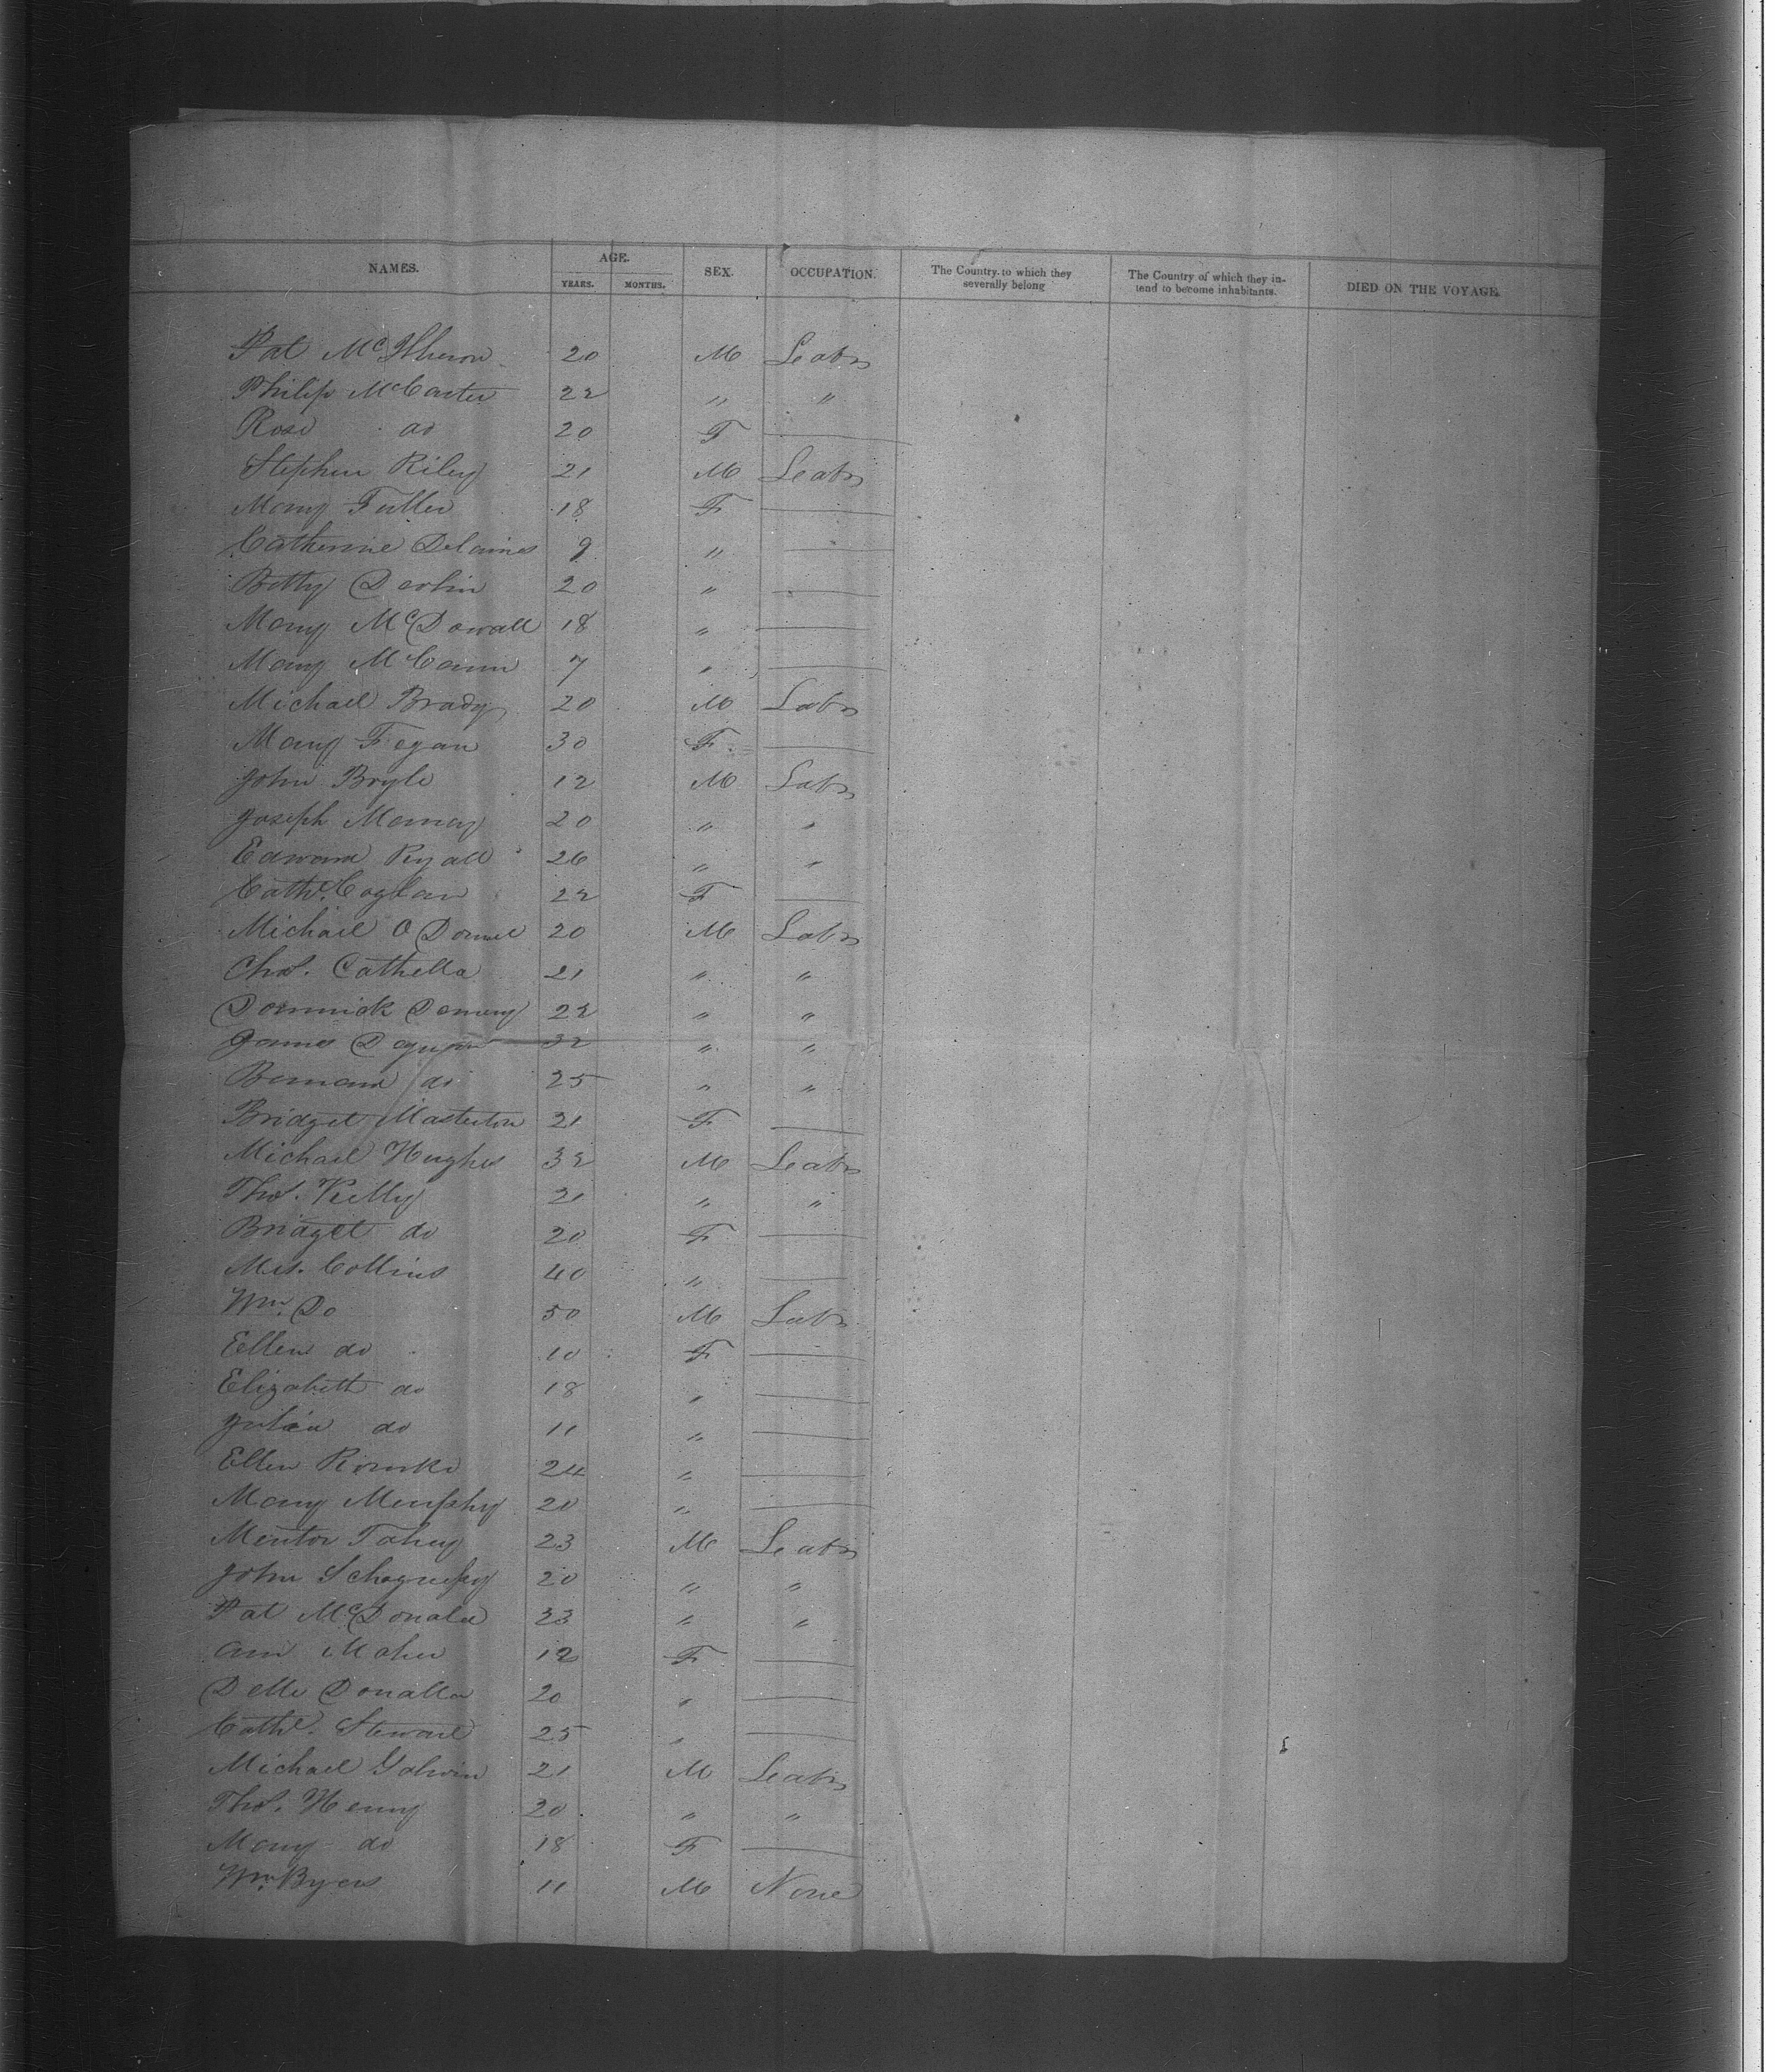 NAMES. AGE. YEARS. MONTHS. SEX. OCCUPATION. The Country to which they severally belong The Country of which they intend to become inhabitants. DIED ON THE VOYAGE.
Pat 20 M Labr
Philip McCarter 22 " "
Rose do 20 F
Stephen Riley 21 M Labr
Mary Fuller 18 F
Catherine 9 "
Betty Devlin 20 "
Mary McDowall 18 "
Mary McCann 7 "
Michael Brady 20 M Labr
Mary Fegan 30 F
John Boyle 12 M Labr
Joseph 20 " "
Edward Ryall 26 " "
Cathe. Coglan 22 F
Michael O Donnel 20 M Labr
Chas. Cathella 21 " "
Dominick 22 " "
James 32 " "
Bernard do 25 " "
Bridget Masterton 21 F
Michael Hughes 32 M Labr
Thos. Kelly 21 " "
Bridget do 20 F
Mrs. Collins 40 "
Wm. Do 50 M Labr
Ellen do 10 F
Elizabeth do 18 "
Julia do 11 "
Ellen 24 "
Mary Murphy 20 "
23 M Labr
John 20 " "
Pat McDonald 23 " "
Ann Maher 12 F
20 "
Cathe. Steward 25 "
Michael Galvin 21 M Labr
Thos. Henry 20 " "
Mary do 18 F
Wm. Byers 11 M None